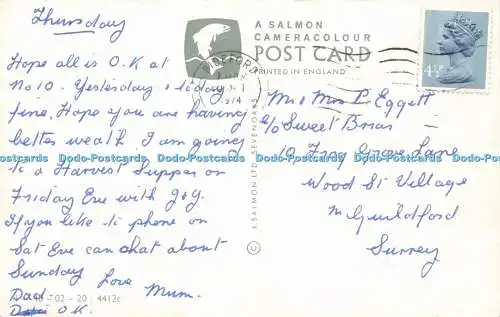 Thursday
Hope all is O.K at
No 10. Yesterday & today
fine, Hope you are having
better weath I am going
to a Harvest Supper on
Friday Eve with J & G.
If you like to phone on
Sat Eve can chat about
Sunday Love
Dad. Mum.
O.K.
- 02 - 20 : 4412c
A SALMON
CAMERACOLOUR
POST CARD
PRINTED IN ENGLAND
1974
4½P
© J. SALMON LTD. SEVENOAKS
Mr & Mrs P. Eggett
c/o Sweet Briar
10 Frog Grove Lane
Wood St Village
Nr Guildford
Surrey
Dodo-Postcards Dodo-Postcards Dodo-Postcards Dodo-Postcards Dodo-Postcards